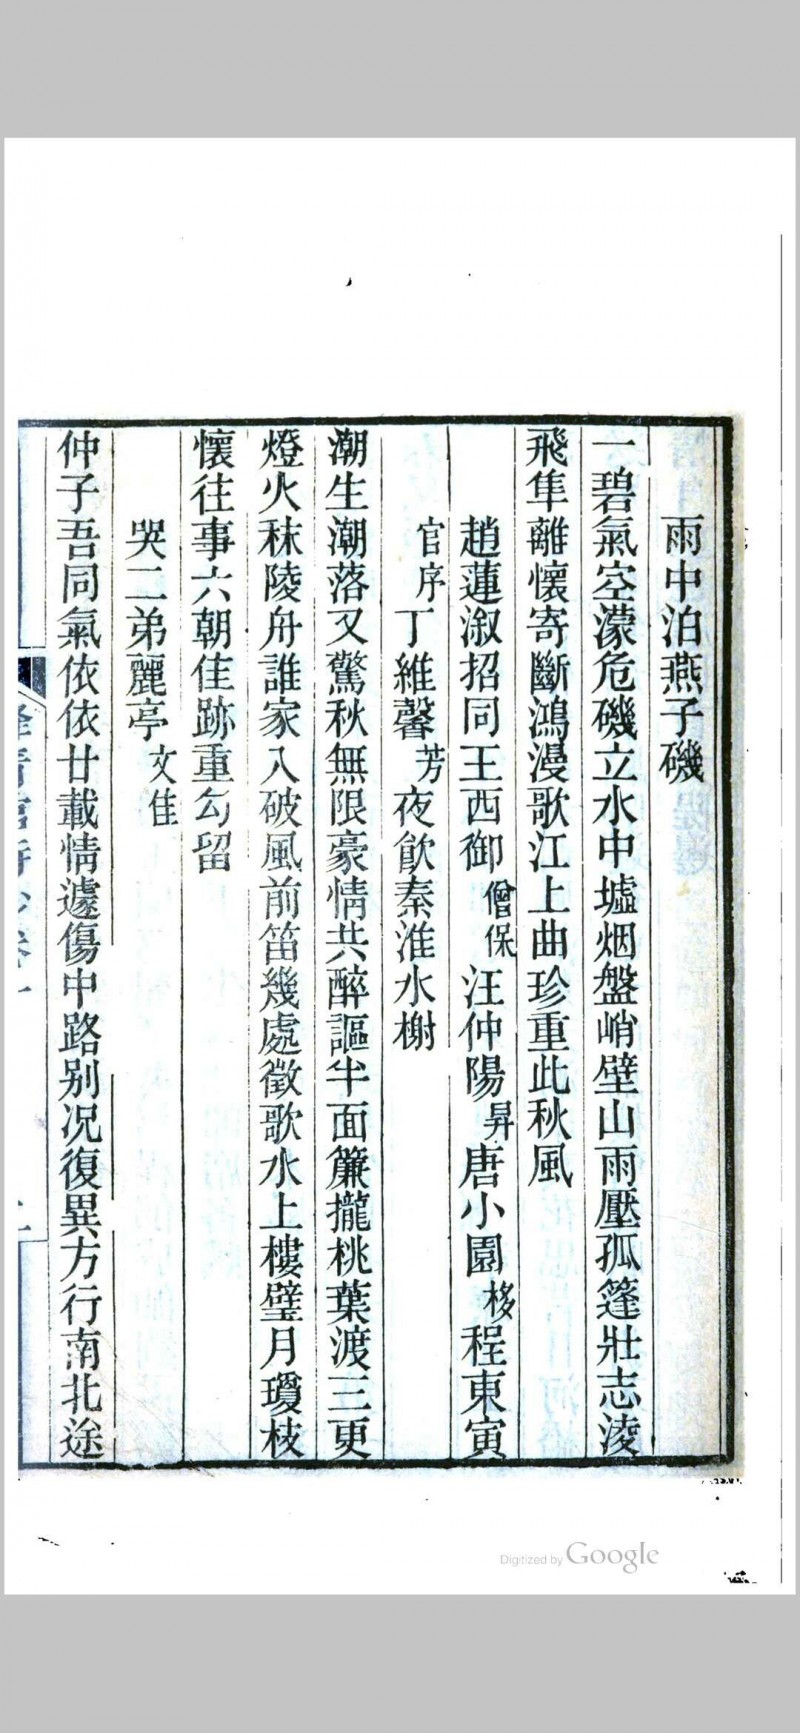 雨中泊燕子磯
一碧氣空濛危磯立水中墟烟盤峭壁山雨壓孤篷壯志淩
飛隼離懷寄斷鴻漫歌江上曲珍重此秋風
趙蓮溆招同王西御僧保汪仲陽昇唐小園移程東寅
官序丁維馨芳夜飲秦淮水榭
潮生潮落又驚秋無限豪情共醉謳半面簾攏桃葉渡三更
燈火秣陵舟誰家入破風前笛幾處徵歌水上樓璧月瓊枝
懷往事六朝佳跡重勾留
哭二弟麗亭文佳
仲子吾同氣依依廿載情遽傷中路别况復異方行南北途
Digitized by Google